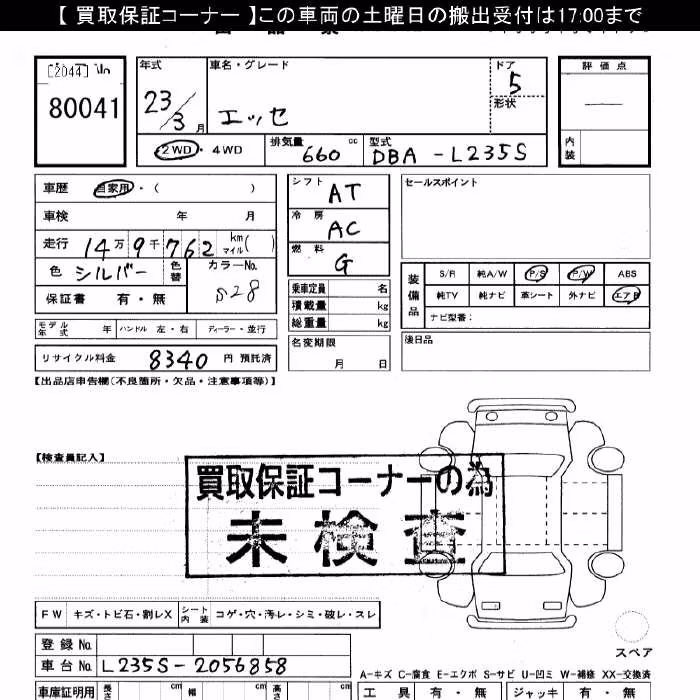 【 買取保証コーナー 】この車両の土曜日の搬出受付は17:00まで
80041
年式
23/3月
車名・グレード
エッセ
ドア
5
形状
評価点
内装
2WD・4WD
排気量 660 cc
型式 DBA-L235S
車歴 自家用・( )
車検 年 月
走行 14万9千762 km マイル( )
色 シルバー 色替
カラーNo. S28
保証書 有・無
シフト AT
冷房 AC
燃料 G
乗車定員 名
積載量 kg
総重量 kg
名変期限
月 日
セールスポイント
装備品
S/R 純A/W P/S P/W ABS
純TV 純ナビ 革シート 外ナビ エアB
ナビ型番:
後日品
モデル年式 年 ハンドル 左・右 ディーラー・並行
リサイクル料金 8340 円 預託済
【出品店申告欄(不良箇所・欠品・注意事項等)】
【検査員記入】
買取保証コーナーの為
未検査
FW キズ・トビ石・割レX シート内装 コゲ・穴・汚レ・シミ・破レ・スレ
スペア
登録No.
車台No. L235S-2056858
A-キズ C-腐食 E-エクボ S-サビ U-凹ミ W-補修 XX-交換済
車庫証明用 長さ cm 幅 cm 高さ cm
工具 有・無 ジャッキ 有・無